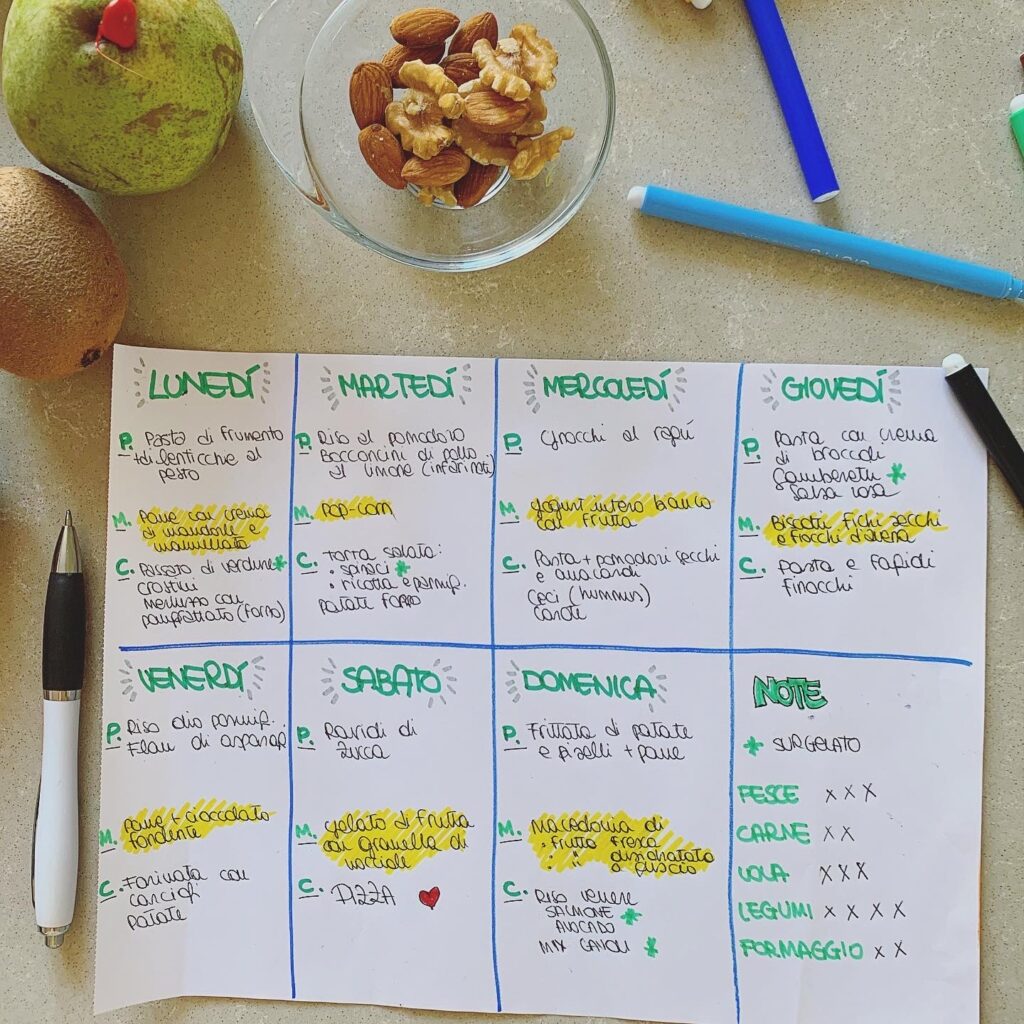 LUNEDÍ
P. Pasta di frumento
+di lenticche al
pesto
M. Pane con crema
di mandorle e
marmellata
C. Passato di verdure *
crostini
merluzzo con
pangrattato (forno)
MARTEDÍ
P. Riso al pomodoro
Bocconcini di pollo
al limone (infarinati)
M. Pop-corn
C. Torta salata:
• spinaci *
• ricotta e parmig.
patate forno
MERCOLEDÍ
P. Gnocchi al ragú
M. yogurt intero bianco
con frutta
C. Pasta + pomodori secchi
e anacardi
Ceci (hummus)
Carote
GIOVEDÍ
P. Pasta con crema
di broccoli
Gamberetti *
salsa rosa
M. Biscotti fichi secchi
e fiocchi d'avena
C. Pasta e fagioli
finocchi
VENERDÍ
P. Riso olio parmig.
Flan di asparagi
M. pane + cioccolato
fondente
C. Farinata con
carciofi
patate
SABATO
P. Ravioli di
zucca
M. gelato di frutta
con granella di
nocciole
C. PIZZA
DOMENICA
P. Frittata di patate
e piselli + pane
M. Macedonia di
• frutta fresca
• " disidratata
o guscio
C. Riso venere
SALMONE *
AVOCADO
MIX CAVOLI *
NOTE
* SURGELATO
PESCE x x x
CARNE x x
UOVA x x x
LEGUMI x x x x
FORMAGGIO x x